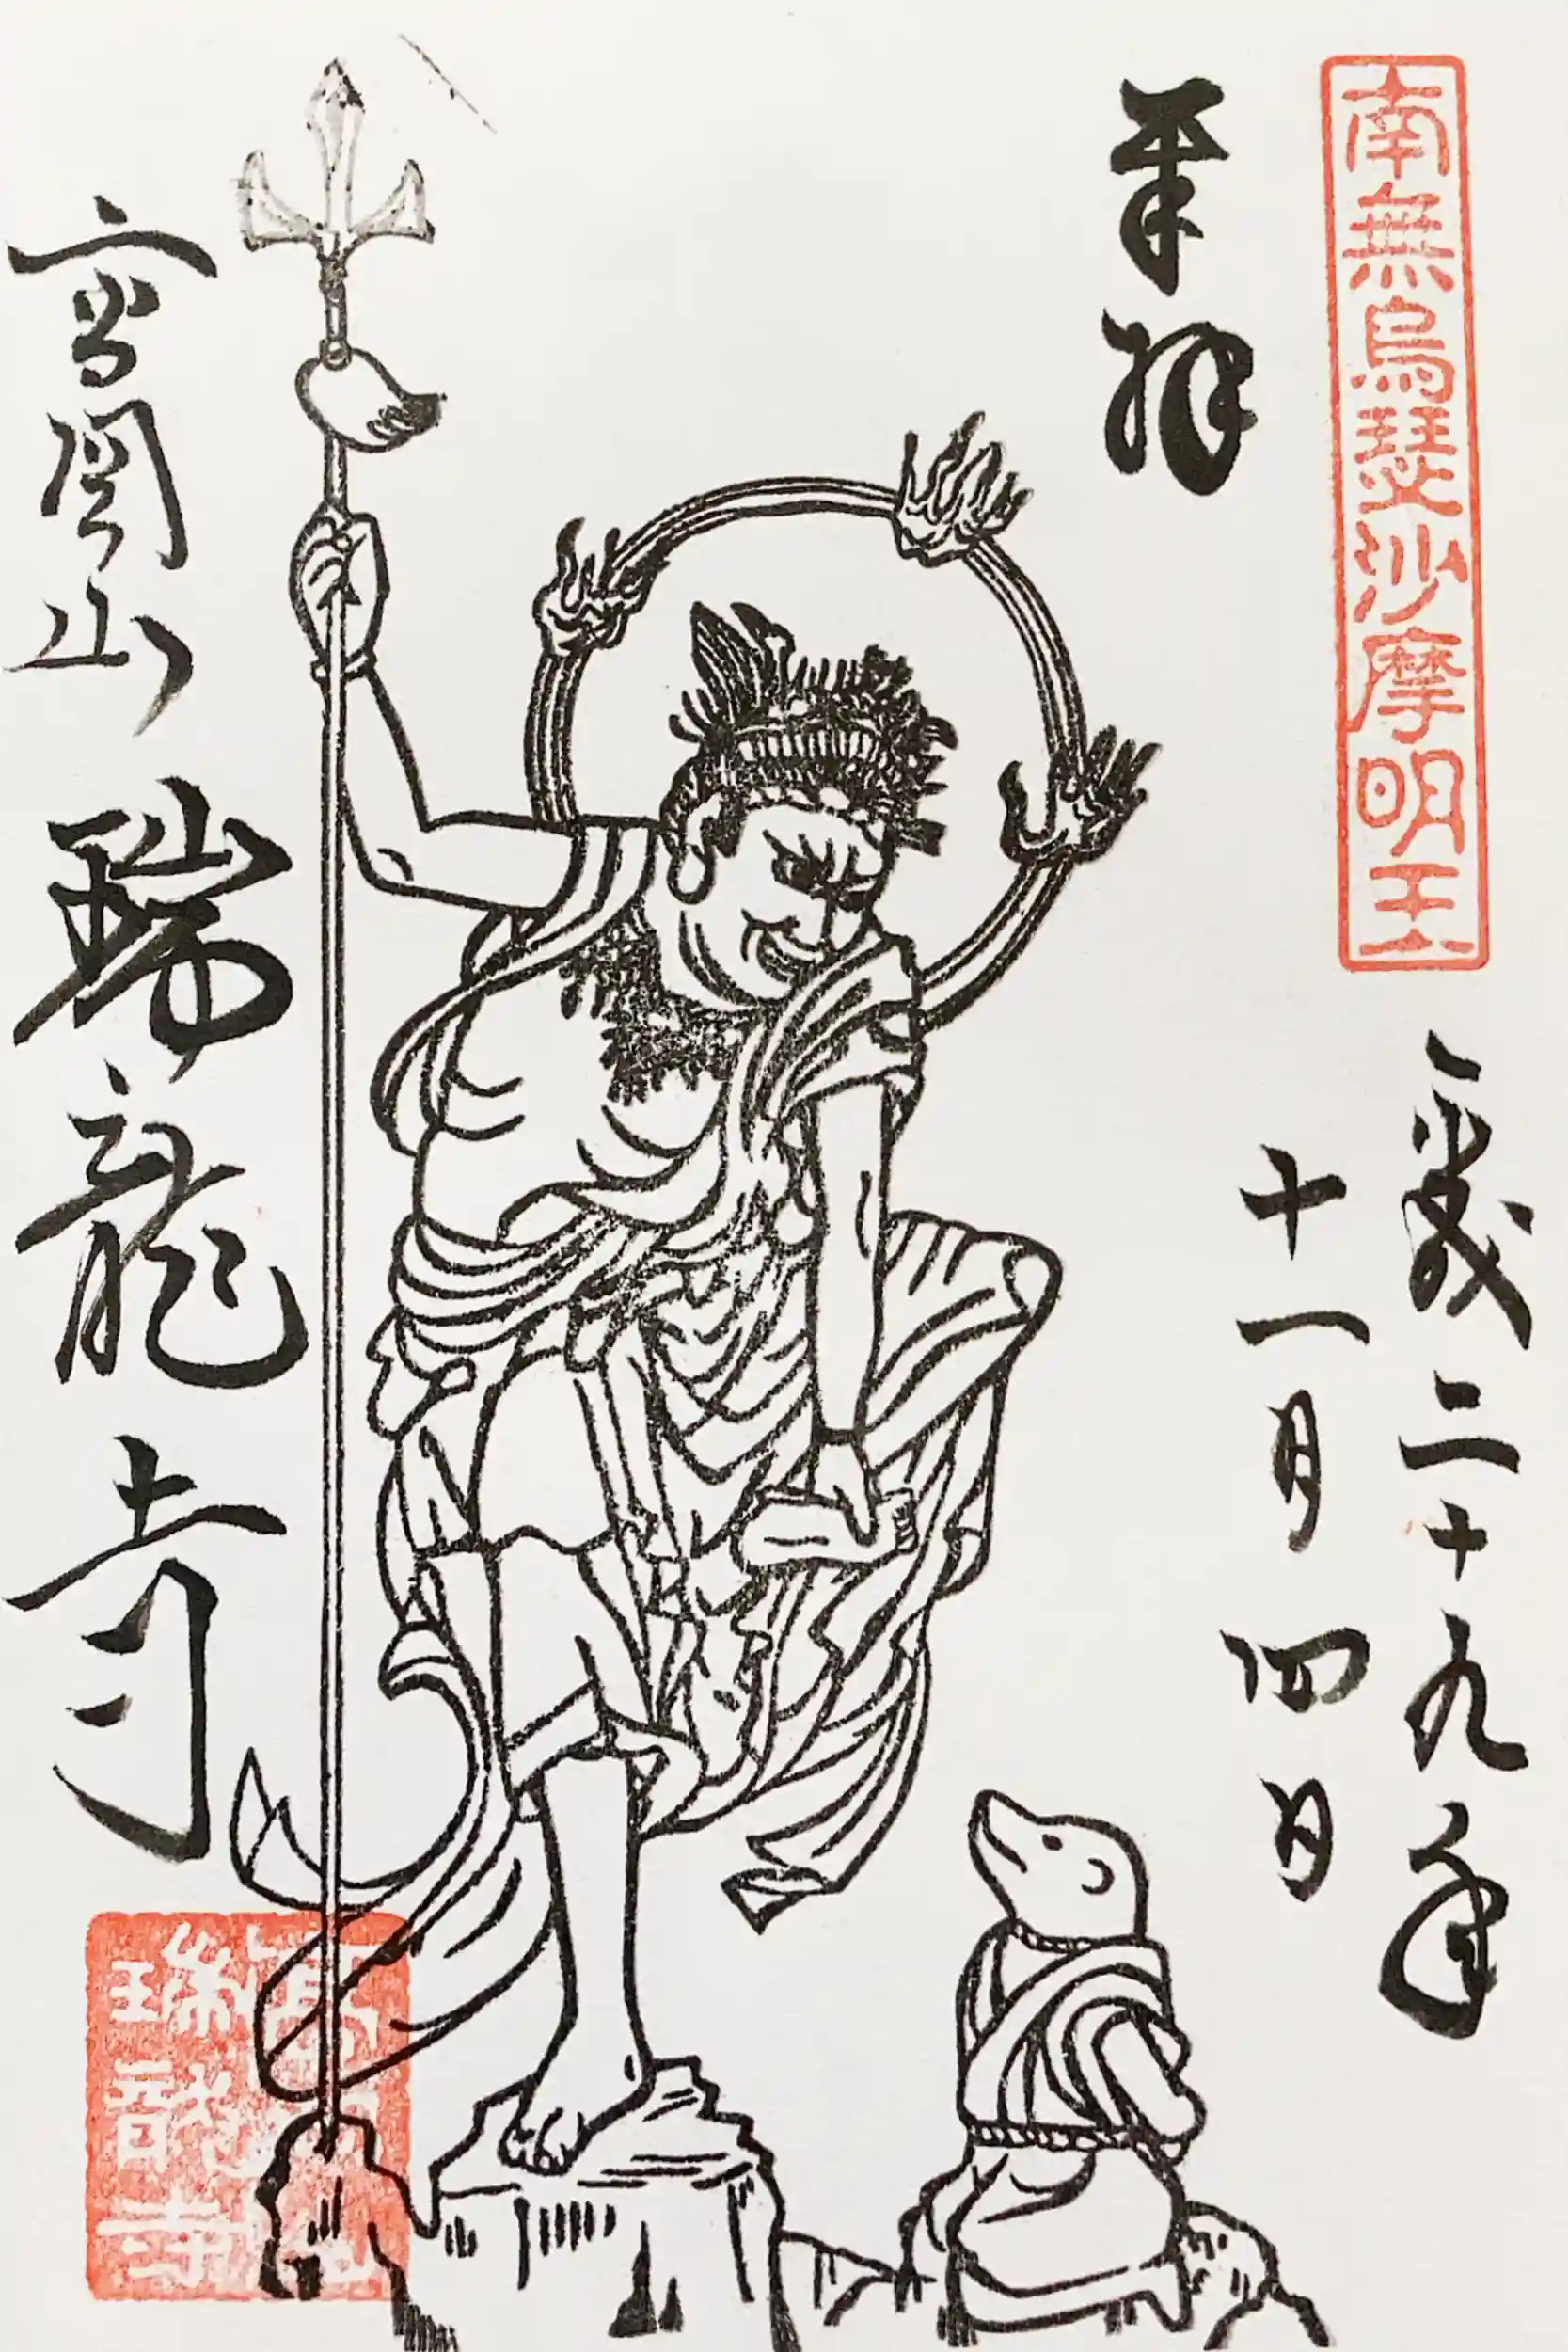 南無烏瑟沙摩明王
平成二十九年
十一月四日
奉拝
高岡山 瑞龍寺
瑞龍寺